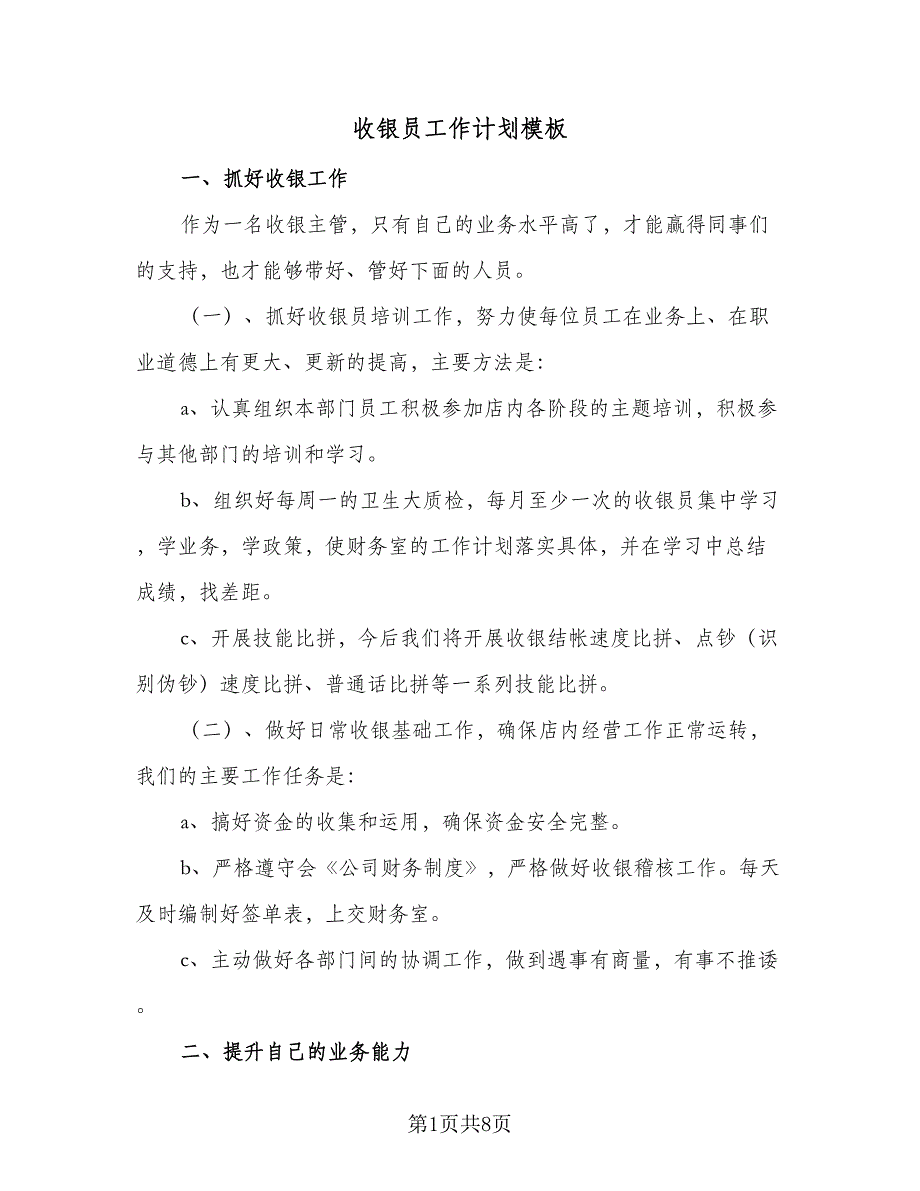 收银员工作计划模板
一、抓好收银工作
作为一名收银主管，只有自己的业务水平高了，才能赢得同事们
的支持，也才能够带好、管好下面的人员。
（一）、抓好收银员培训工作，努力使每位员工在业务上、在职
业道德上有更大、更新的提高，主要方法是：
a、认真组织本部门员工积极参加店内各阶段的主题培训，积极参
与其他部门的培训和学习。
b、组织好每周一的卫生大质检，每月至少一次的收银员集中学习
，学业务，学政策，使财务室的工作计划落实具体，并在学习中总结
成绩，找差距。
c、开展技能比拼，今后我们将开展收银结帐速度比拼、点钞（识
别伪钞）速度比拼、普通话比拼等一系列技能比拼。
（二）、做好日常收银基础工作，确保店内经营工作正常运转，
我们的主要工作任务是：
a、搞好资金的收集和运用，确保资金安全完整。
b、严格遵守会《公司财务制度》，严格做好收银稽核工作。每天
及时编制好签单表，上交财务室。
c、主动做好各部门间的协调工作，做到遇事有商量，有事不推诿
。
二、提升自己的业务能力
第1页共8页